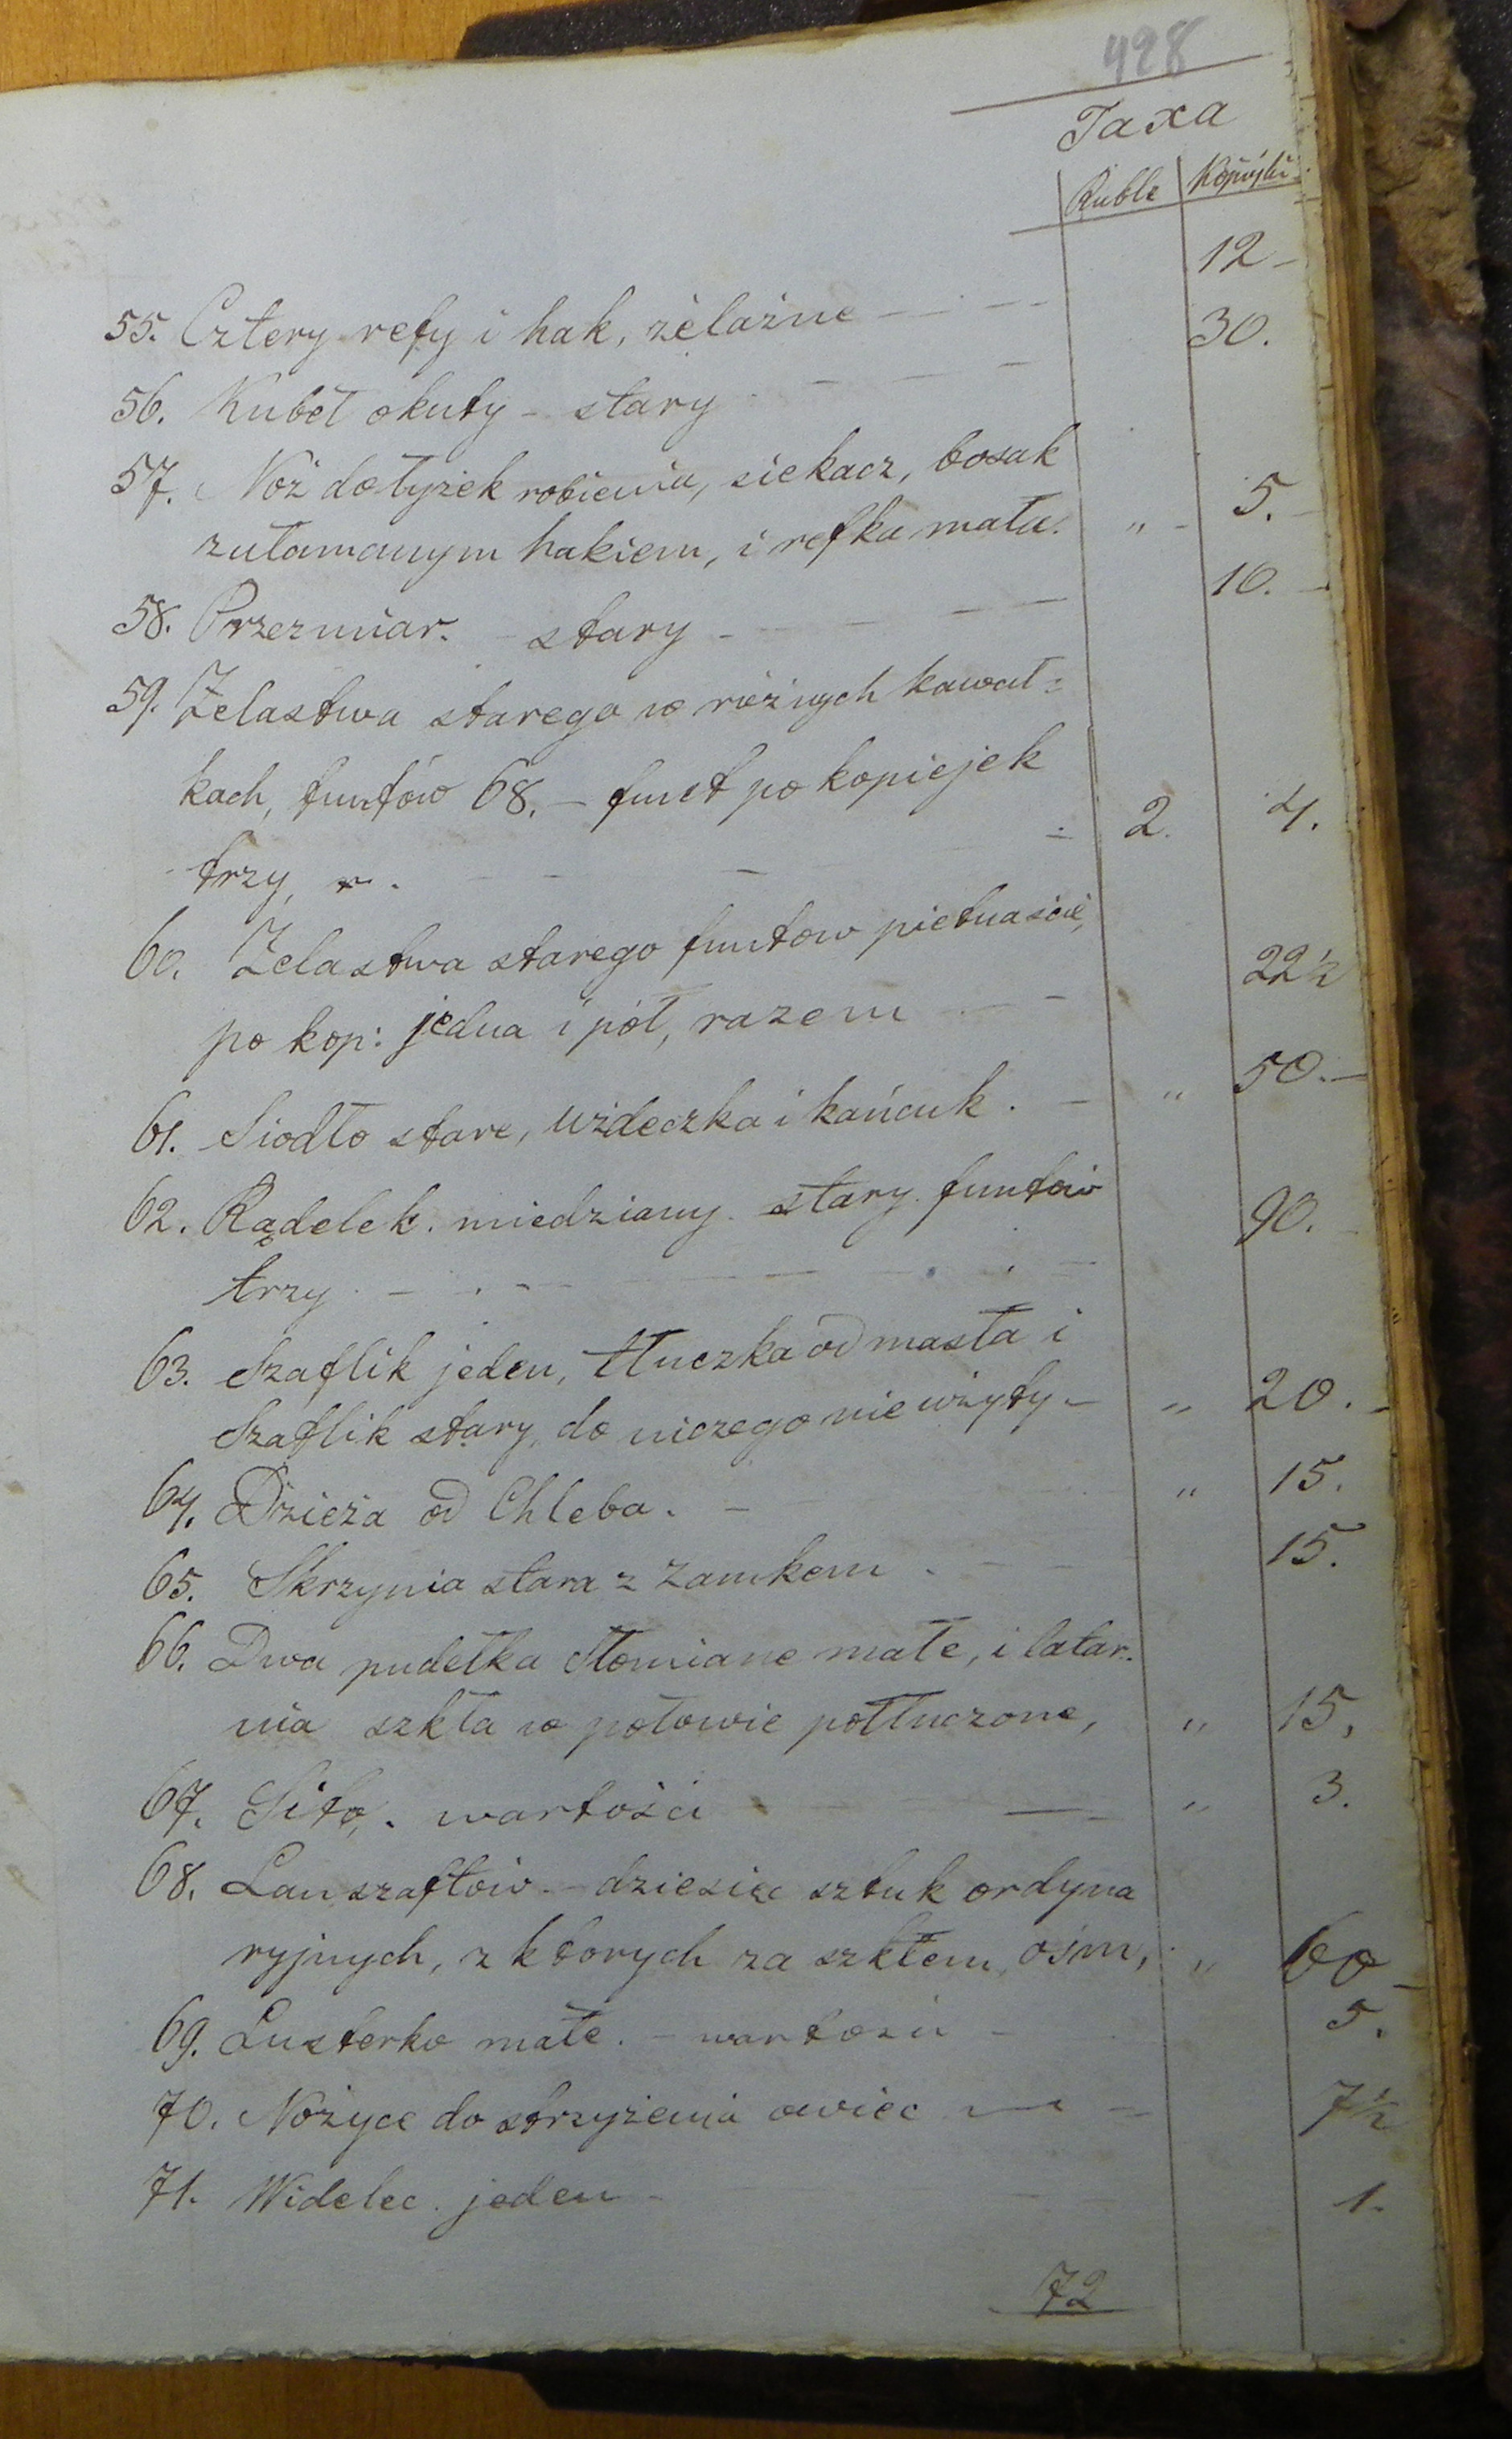 428
Taxa
Ruble Kopiejki
55. Cztery refy i hak, żelaźne - - - 12 -
56. Kubeł okuty - stary - - - 30.
57. Nóż do łyżek robienia, siekacz, bosak
zułamanym hakiem, i refka mała. " - 5. -
58. Przezmiar. - stary - - - 10. -
59. Żelastwa starego w różnych kawał=
kach, funtów 68. - funt po kopiejek
trzy, - - = 2. 4.
60. Żelastwa starego funtow pietnaście,
po kop: jedna i pół, razem - - 22½
61. Siodło stare, uździeczka i kańcuk. - " 50. -
62. Rądelek. miedziany. stary. funtów
trzy. - - - - 90. -
63. Szaflik jeden, tłuczka od masła i
Szaflik stary, do niczego nie użyty - " 20. -
64. Dzieża od Chleba. - " 15.
65. Skrzynia stara z zamkem. - - 15.
66. Dwa pudełka słomiane małe, i latar.
nia szkła w połowie potłuczone, " 15,
67. Sito, . wartości - - " 3.
68. Lanszaftów. - dziesięc sztuk ordyna
ryjnych, z ktorych za szkłem, ośm, " 60 -
69. Lusterko małe. - wartości - 5.
70. Nożyce do strzyżenia owiec - - 7½
71. Widelec. jeden - 1.
72